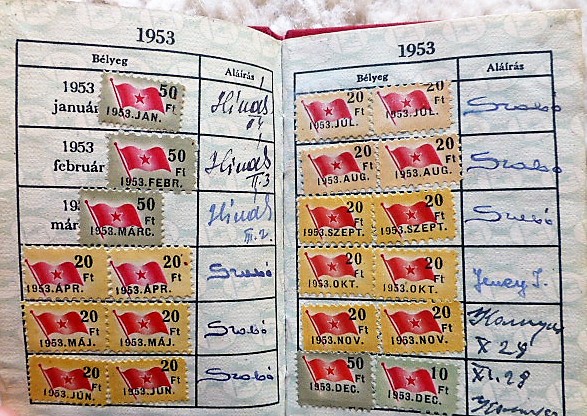 1953
Bélyeg Aláírás
1953 január 50 Ft 1953.JAN.
1953 február 50 Ft 1953.FEBR. II.3
már 50 Ft 1953.MÁRC. III.2.
20 Ft 1953.ÁPR. 20 Ft 1953.ÁPR. Szabó
20 Ft 1953.MÁJ. 20 Ft 1953.MÁJ. Szabó
20 Ft 1953.JÚN. 20 Ft 1953.JÚN. Szabó
1953
Bélyeg Aláírás
20 Ft 1953.JÚL. 20 Ft 1953.JÚL. Szabó
20 Ft 1953.AUG. 20 Ft 1953.AUG. Szabó
20 Ft 1953.SZEPT. 20 Ft 1953.SZEPT. Szabó
20 Ft 1953.OKT. 20 Ft 1953.OKT. Jeney J.
20 Ft 1953.NOV. 20 Ft 1953.NOV. X 29
50 Ft 1953.DEC. 10 Ft 1953.DEC. XI.28